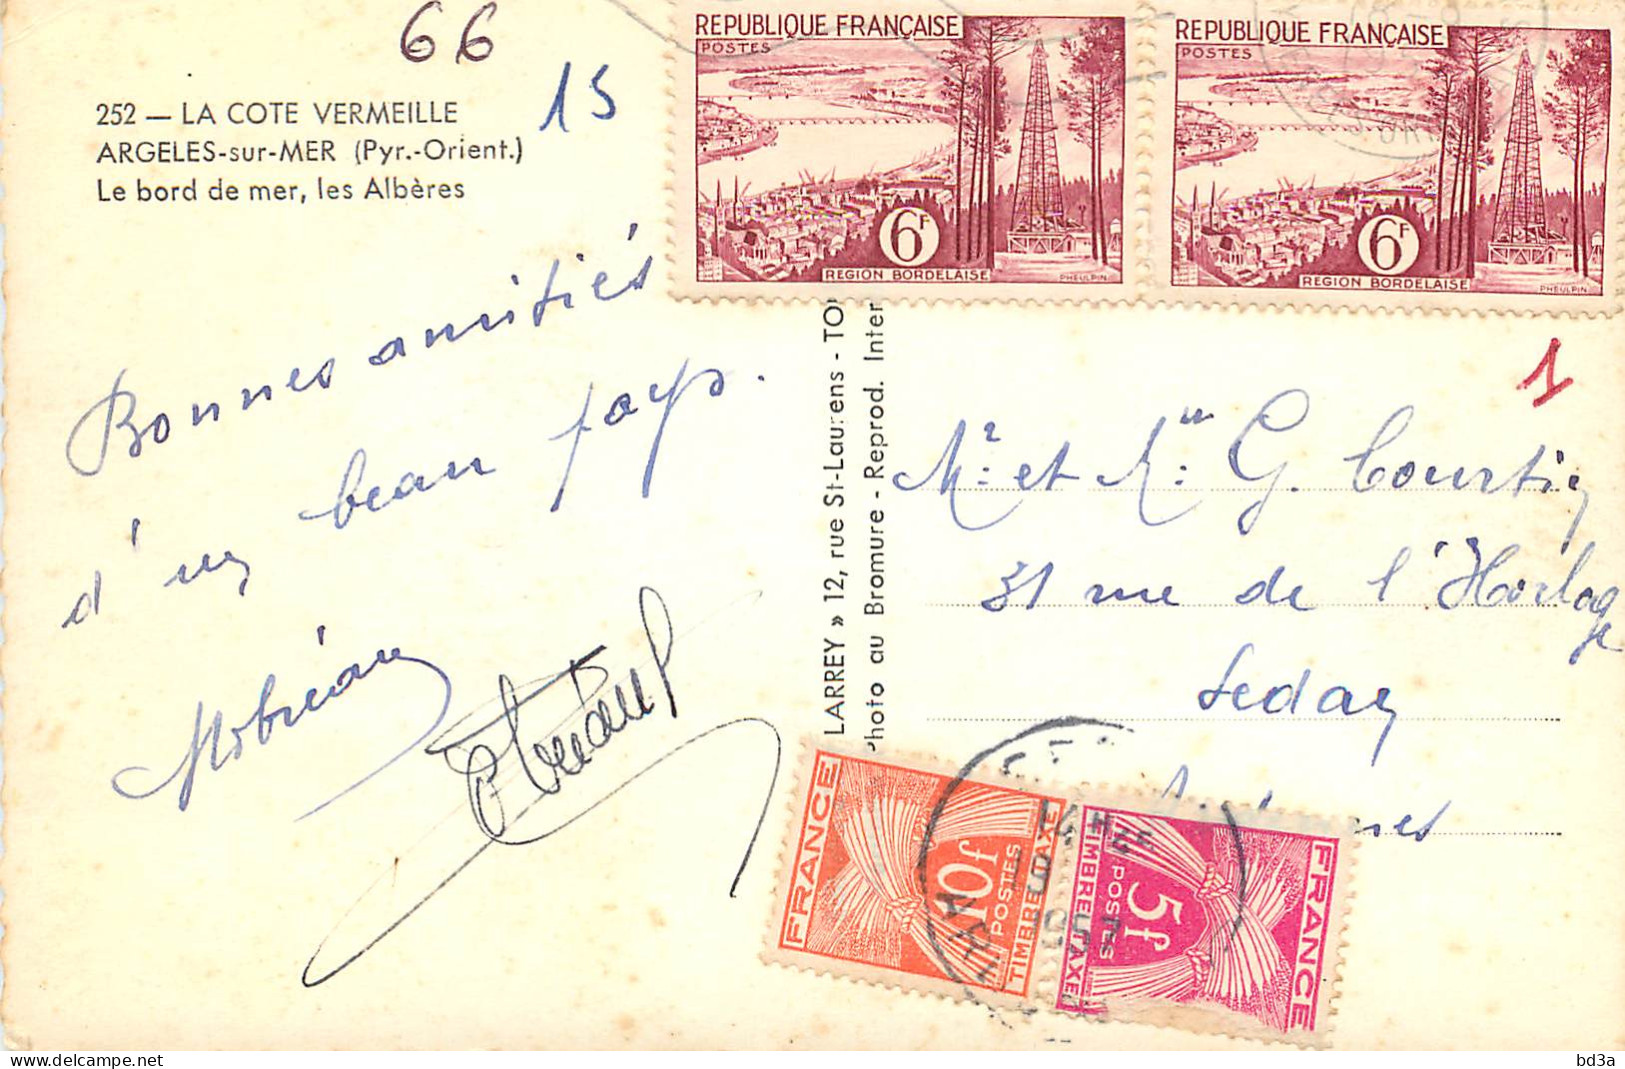 66
15
252 — LA COTE VERMEILLE
ARGELES-sur-MER (Pyr.-Orient.)
Le bord de mer, les Albères
REPUBLIQUE FRANÇAISE
POSTES
6F
REGION BORDELAISE
PHEULPIN
REPUBLIQUE FRANÇAISE
POSTES
6F
REGION BORDELAISE
PHEULPIN
Bonnes amitiés
d'un beau pays.
LARREY » 12, rue St-Laurens - TO
Photo au Bromure - Reprod. Inter
1
Mr. et Me. G. Courtin
31 rue de l'Horloge
Sedan
FRANCE
10f
POSTES
TIMBRE TAXE
FRANCE
5f
POSTES
TIMBRE TAXE
14H
957
bd3a